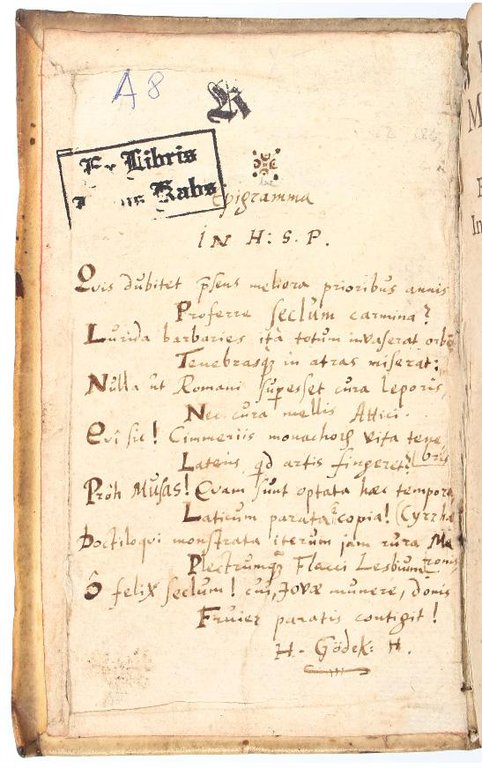 A 8
Ex Libris
Rabs
Epigramma
IN H: S. P.
Qvis dubitet p̄sens meliora prioribus annis
Proferre seclum carmina?
Lurida barbaries ità totum invaserat orbē
Tenebrasq; in atras miserat:
Nulla ut Romani supesset cura leporis,
Nec cura mellis Attici.
sic! Cimmeriis monachorꝫ vita tene
bris
Latens, qd artis fingeret?
Pròh Musas! Qvam sunt optata hæc tempora
Laticum parata copia! (Cyrrhæ
Doctiloqvi monstrata iterum jam rura Ma
ronis
Plectrumq; Flacci Lesbium
Ô felix seclum! cui, Jovæ munere, donis
Fruier paratis contigit!
H. Gödek: H.